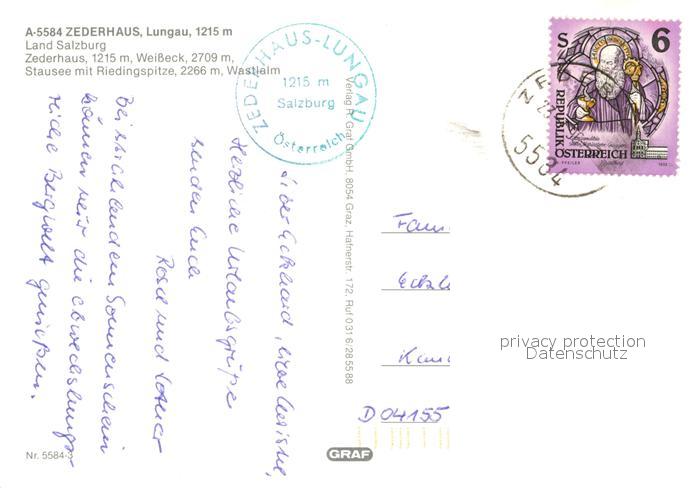 A-5584 ZEDERHAUS, Lungau, 1215 m
Land Salzburg
Zederhaus, 1215 m, Weißeck, 2709 m,
Stausee mit Riedingspitze, 2266 m, Wastlalm
ZEDERHAUS-LUNGAU
1215 m
Salzburg
Österreich
S 6
REPUBLIK
ÖSTERREICH
5584
Verlag R. Graf GmbH, 8054 Graz, Hafnerstr. 172, Ruf 0316/285588
Lieber Eckhard, liebe
Herzliche Urlaubsgrüße
senden Euch
Rosa und
Bei strahlendem Sonnenschein
können wir die abwechslungs-
reiche Bergwelt genießen.
Fam
Eckh
D 04155
privacy protection
Datenschutz
Nr. 5584-3
GRAF